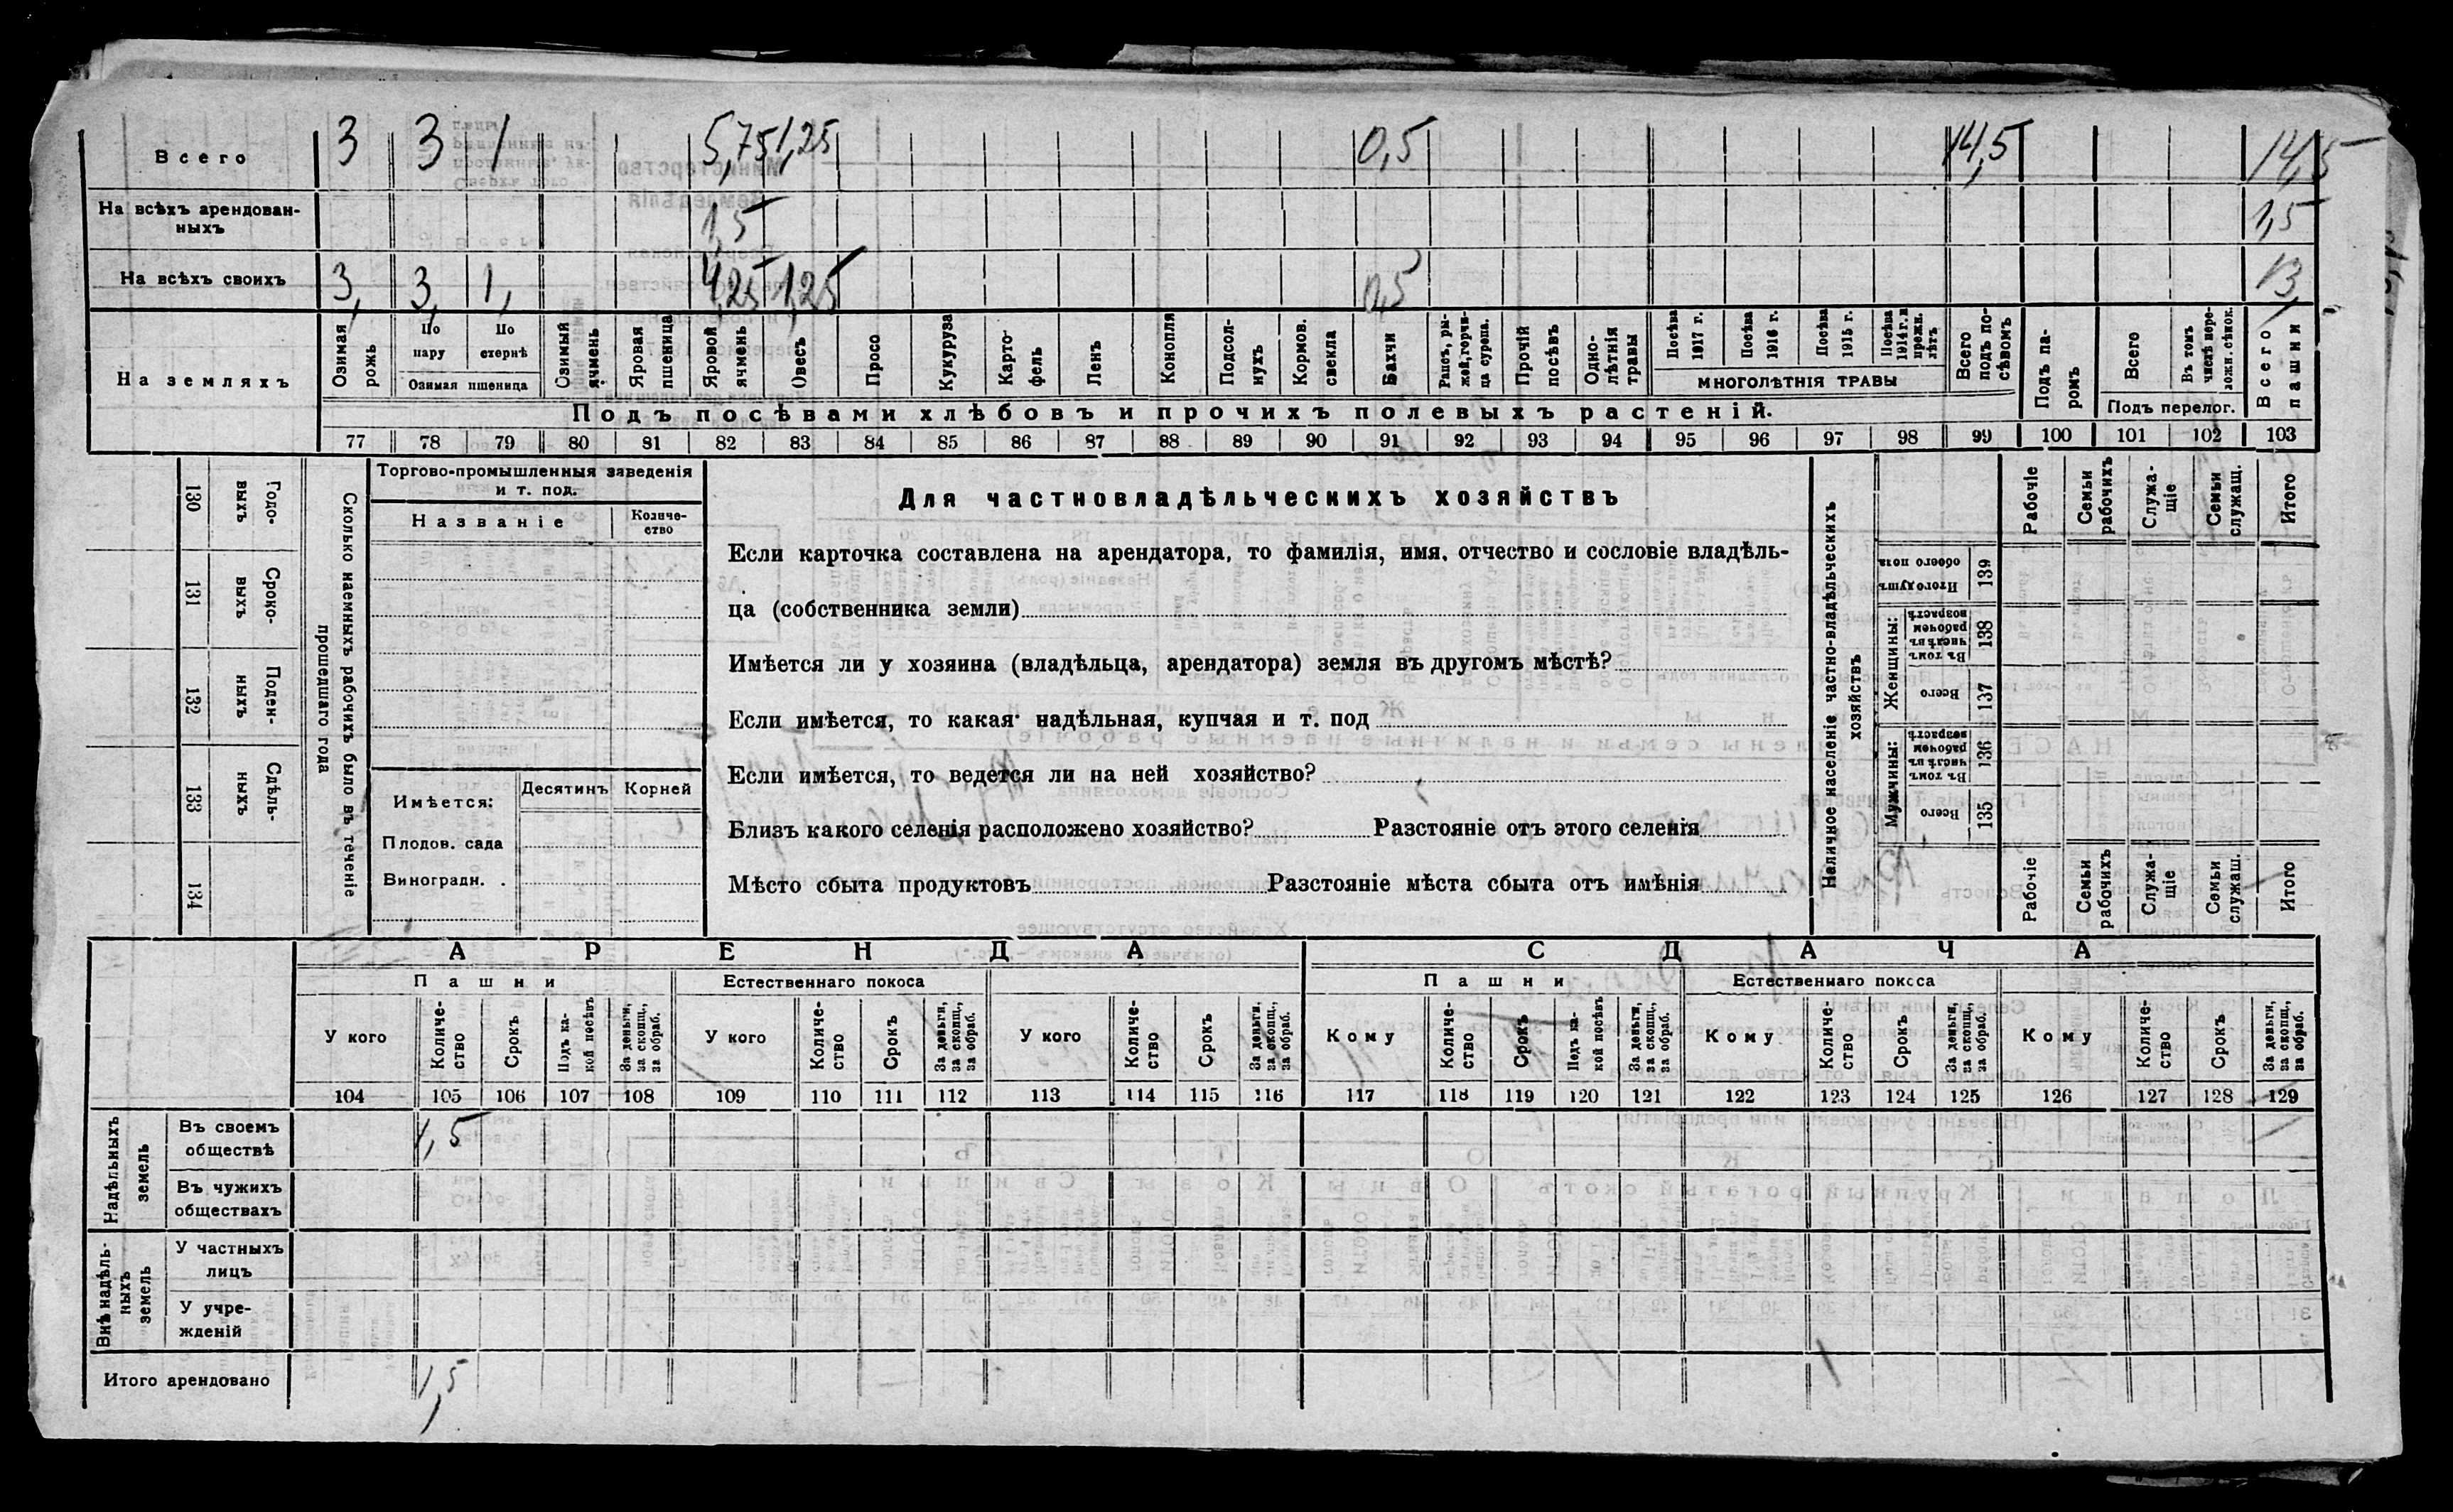 Всего 3 3 1 5,75 1,25 0,5 14,5 14,5
На всѣхъ арендован-
ныхъ 1,5 1,5
На всѣхъ своихъ 3, 3, 1, 4,25 1,25 0,5 13,
На земляхъ
Озимая рожь
По пару
По стернѣ
Озимая пшеница
Озимый ячмень
Яровая пшеница
Яровой ячмень
Овесъ
Просо
Кукуруза
Карто-
фель
Ленъ
Конопля
Подсол-
нухъ
Кормов. свекла
Бахчи
Рапсъ, ры-
жей, горчи-
ца сурепа.
Прочій посѣвъ
Одно-
лѣтнія травы
Посѣва 1917 г.
Посѣва 1916 г.
Посѣва 1915 г.
Посѣва 1914 г. и прежн. лѣтъ
МНОГОЛѢТНІЯ ТРАВЫ
Всего подъ по-
сѣвомъ
Подъ па-
ромъ
Всего
Въ томъ числѣ пере-
ложн. сѣнок.
Подъ перелог.
Всего пашни
Подъ посѣвами хлѣбовъ и прочихъ полевыхъ растеній.
77 78 79 80 81 82 83 84 85 86 87 88 89 90 91 92 93 94 95 96 97 98 99 100 101 102 103
130 Годо-
выхъ
131 Сроко-
выхъ
132 Поден-
ныхъ
133 Сдѣль-
ныхъ
134
Сколько наемныхъ рабочихъ было въ теченіе
прошедшаго года
Торгово-промышленныя заведенія
и т. под.
Названіе
Количе-
ство
Имѣется:
Десятинъ
Корней
Плодов. сада
Виноградн.
Для частновладѣльческихъ хозяйствъ
Если карточка составлена на арендатора, то фамилія, имя, отчество и сословіе владѣль-
ца (собственника земли)
Имѣется ли у хозяина (владѣльца, арендатора) земля въ другомъ мѣстѣ?
Если имѣется, то какая: надѣльная, купчая и т. под
Если имѣется, то ведется ли на ней хозяйство?
Близъ какого селенія расположено хозяйство? Разстояніе отъ этого селенія
Мѣсто сбыта продуктовъ Разстояніе мѣста сбыта отъ имѣнія
Наличное населеніе частно-владѣльческихъ
хозяйствъ
Рабочіе
Семьи рабочихъ
Служа-
щіе
Семьи служащ.
Итого
Итого душъ обоего пола 139
Женщины:
Въ томъ числѣ въ рабочемъ возрастѣ 138
Всего 137
Мужчины:
Въ томъ числѣ въ рабочемъ возрастѣ 136
Всего 135
Рабочіе
Семьи рабочихъ
Служа-
щіе
Семьи служащ.
Итого
АРЕНДА
СДАЧА
Пашни
Естественнаго покоса
Пашни
Естественнаго покоса
У кого
Количе-
ство
Срокъ
Подъ ка-
кой посѣвъ
За деньги, за скопщ., за обраб.
У кого
Количе-
ство
Срокъ
За деньги, за скопщ., за обраб.
У кого
Количе-
ство
Срокъ
За деньги, за скопщ., за обраб.
Кому
Количе-
ство
Срокъ
Подъ ка-
кой посѣвъ
За деньги, за скопщ., за обраб.
Кому
Количе-
ство
Срокъ
За деньги, за скопщ., за обраб.
Кому
Количе-
ство
Срокъ
За деньги, за скопщ., за обраб.
104 105 106 107 108 109 110 111 112 113 114 115 116 117 118 119 120 121 122 123 124 125 126 127 128 129
Надѣльныхъ
земель
Въ своемъ
обществѣ 1,5
Въ чужихъ
обществахъ
Внѣ надѣль-
ныхъ
земель
У частныхъ
лицъ
У учре-
жденій
Итого арендовано 1,5